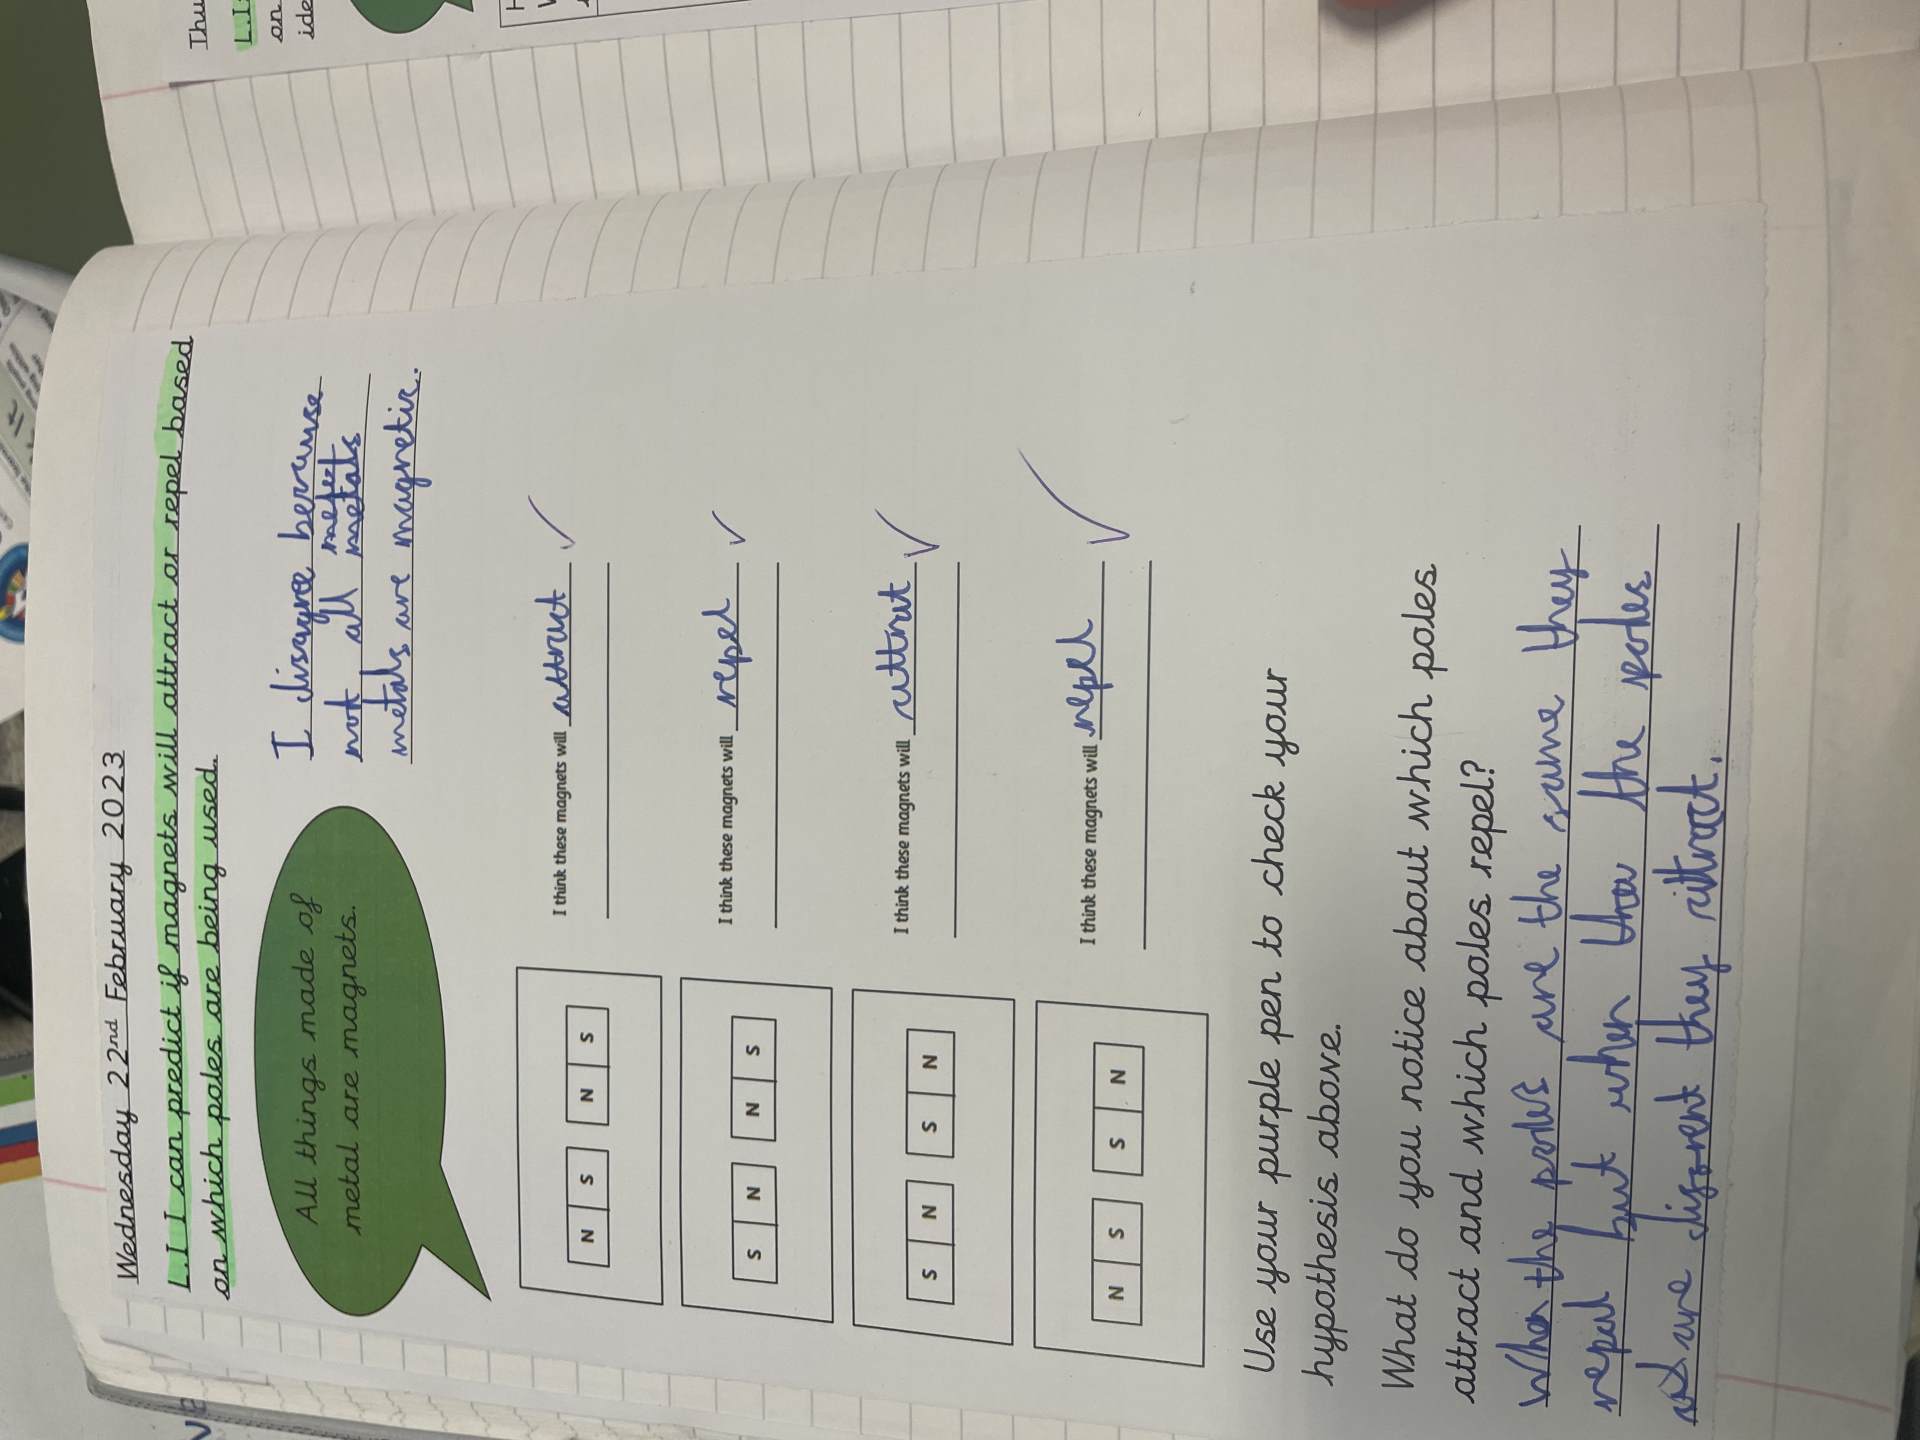 Wednesday 22nd February 2023
L.I I can predict if magnets will attract or repel based
on which poles are being used.
All things made of
metal are magnets.
I disagree because
not all metals
metals are magnetic.
N S N S
I think these magnets will attract
S N N S
I think these magnets will repel
S N S N
I think these magnets will attrat
N S S N
I think these magnets will repel
Use your purple pen to check your
hypothesis above.
What do you notice about which poles
attract and which poles repel?
When the poles are the same they
repel but when the the poles
are they attract.
Thu
L.I
on
ide